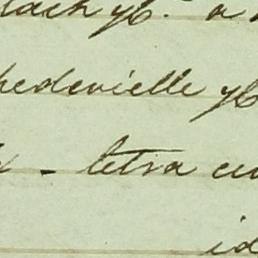 lach yb. a
hedevielle yb
- letra cu
id